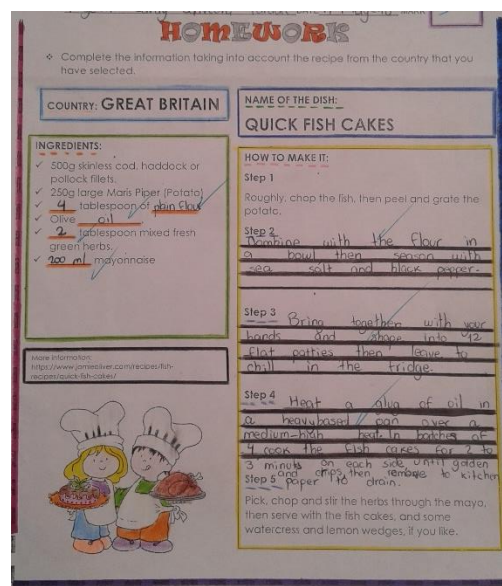 HOMEWORK
❖ Complete the information taking into account the recipe from the country that you
have selected.
COUNTRY: GREAT BRITAIN
INGREDIENTS:
✓ 500g skinless cod, haddock or
pollock fillets.
✓ 250g large Maris Piper (Potato)
✓ 4 tablespoon of plain flour
✓ Olive oil
✓ 2 tablespoon mixed fresh
green herbs.
✓ 200 ml mayonnaise
More information:
https://www.jamieoliver.com/recipes/fish-
recipes/quick-fish-cakes/
NAME OF THE DISH:
QUICK FISH CAKES
HOW TO MAKE IT:
Step 1
Roughly, chop the fish, then peel and grate the
potato.
Step 2
Combine with the flour in
a bowl then season with
sea salt and black pepper.
Step 3 Bring together with your
hands and shape into 12
flat patties then leave to
chill in the fridge.
Step 4 Heat a glug of oil in
a heavybased pan over a
medium-high heat. In batches of
4 cook the fish cakes for 2 to
3 minuts on each side until golden
and crips, then remove to kitchen
Step 5 paper to drain.
Pick, chop and stir the herbs through the mayo,
then serve with the fish cakes, and some
watercress and lemon wedges, if you like.